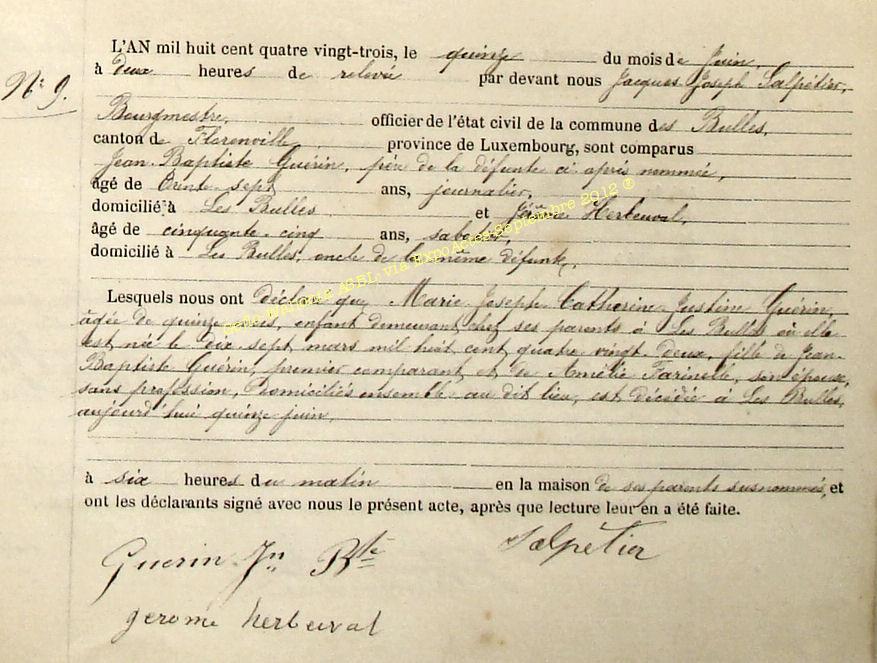 L'AN mil huit cent quatre vingt-trois, le quinze du mois de Juin,
à deux heures de relevée par devant nous Jacques Joseph Salpétier,
Nº 9.
Bourgmestre, officier de l'état civil de la commune des Bulles,
canton de Florenville province de Luxembourg, sont comparus
Jean-Baptiste Guérin, père de la défunte ci après nommée,
âgé de trente sept ans, journalier,
domicilié à Les Bulles et Jérôme Herbeuval,
âgé de cinquante-cinq ans, sabotier,
domicilié à Les Bulles, oncle de la même défunte,
ASBL via ExpoActes Septembre 2012 ®
Lesquels nous ont déclaré que Marie Joseph Catherine Justine Guérin,
âgée de quinze mois, enfant demeurant chez ses parents à Les Bulles où elle
est née le dix sept mars mil huit cent quatre vingt deux, fille de Jean-
Baptiste Guérin, premier comparant et de Amélie Farinelle, son épouse,
sans profession, domiciliés ensemble au dit lieu, est décédée à Les Bulles,
aujourd'hui quinze juin,
à six heures du matin en la maison de ses parents susnommés, et
ont les déclarants signé avec nous le présent acte, après que lecture leur en a été faite.
Guerin Jn Bte Salpétier
gerome herbeuval